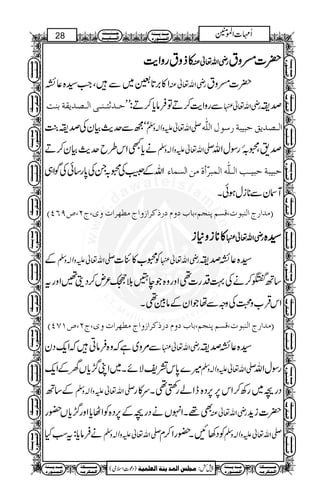 28
اُمہات المؤمنین
حضرت مسروق رضی اللہ تعالیٰ عنہ کا ذوق روایت
حضرت مسروق رضی اللہ تعالیٰ عنہ اکابر تابعین میں سے ہیں، جب سیدہ عائشہ
صدیقہ رضی اللہ تعالیٰ عنہا سے روایت کرتے تو فرمایا کرتے تھے: ’’حدثتنی الصدیقۃ بنت
الصدیق حبیبۃ رسول اللّٰہ صلی اللہ تعالیٰ علیہ والہ وسلم‘‘ مجھ سے حدیث بیان کی صدیقہ بنت
صدیق محبوبۂ رسول اللہ صلی اللہ تعالیٰ علیہ والہ وسلم نے یا کبھی اس طرح حدیث بیان کرتے
حبیبۃ حبیب اللّٰہ المبرّأۃ من السماء اللہ کے حبیب کی محبوبہ جن کی پارسائی کی گواہی
آسمان سے نازل ہوئی۔
(مدارج النبوت،قسم پنجم،باب دوم درذکرازواج مطہرات وی،ج۲،ص۴۶۹)
سیدہ رضی اللہ تعالیٰ عنہا کا ناز و نیاز
سیدہ عائشہ صدیقہ رضی اللہ تعالیٰ عنہا کو محبوب کائنات صلی اللہ تعالیٰ علیہ والہ وسلم کے
ساتھ گفتگو کرنے کی بہت قدرت تھی اور وہ جو چاہتیں بلا جھجک عرض کر دیتی تھیں اور یہ
اس قرب و محبت کی وجہ سے تھا جو ان کے مابین تھی۔
(مدارج النبوت،قسم پنجم،باب دوم درذکرازواج مطہرات وی،ج۲،ص۴۷۱)
سیدہ عائشہ صدیقہ رضی اللہ تعالیٰ عنہا سے مروی ہے کہ وہ فرماتی ہیں کہ ایک دن
رسول اللہ صلی اللہ تعالیٰ علیہ والہ وسلم میرے پاس تشریف لائے۔ میں اپنی گڑیاں گھر کے ایک
دریچہ میں رکھ کر اس پر پردہ ڈالے رکھتی تھی۔ سرکار صلی اللہ تعالیٰ علیہ والہ وسلم کے ساتھ
حضرت زید رضی اللہ تعالیٰ عنہ بھی تھے۔ انہوں نے دریچہ کے پردہ کو اٹھایا اور گڑیاں حضور
صلی اللہ تعالیٰ علیہ والہ وسلم کو دکھائیں۔ حضور اکرم صلی اللہ تعالیٰ علیہ والہ وسلم نے فرمایا: یہ سب کیا
پیش کش: مجلس المدینۃ العلمیۃ (دعوت اسلامی)